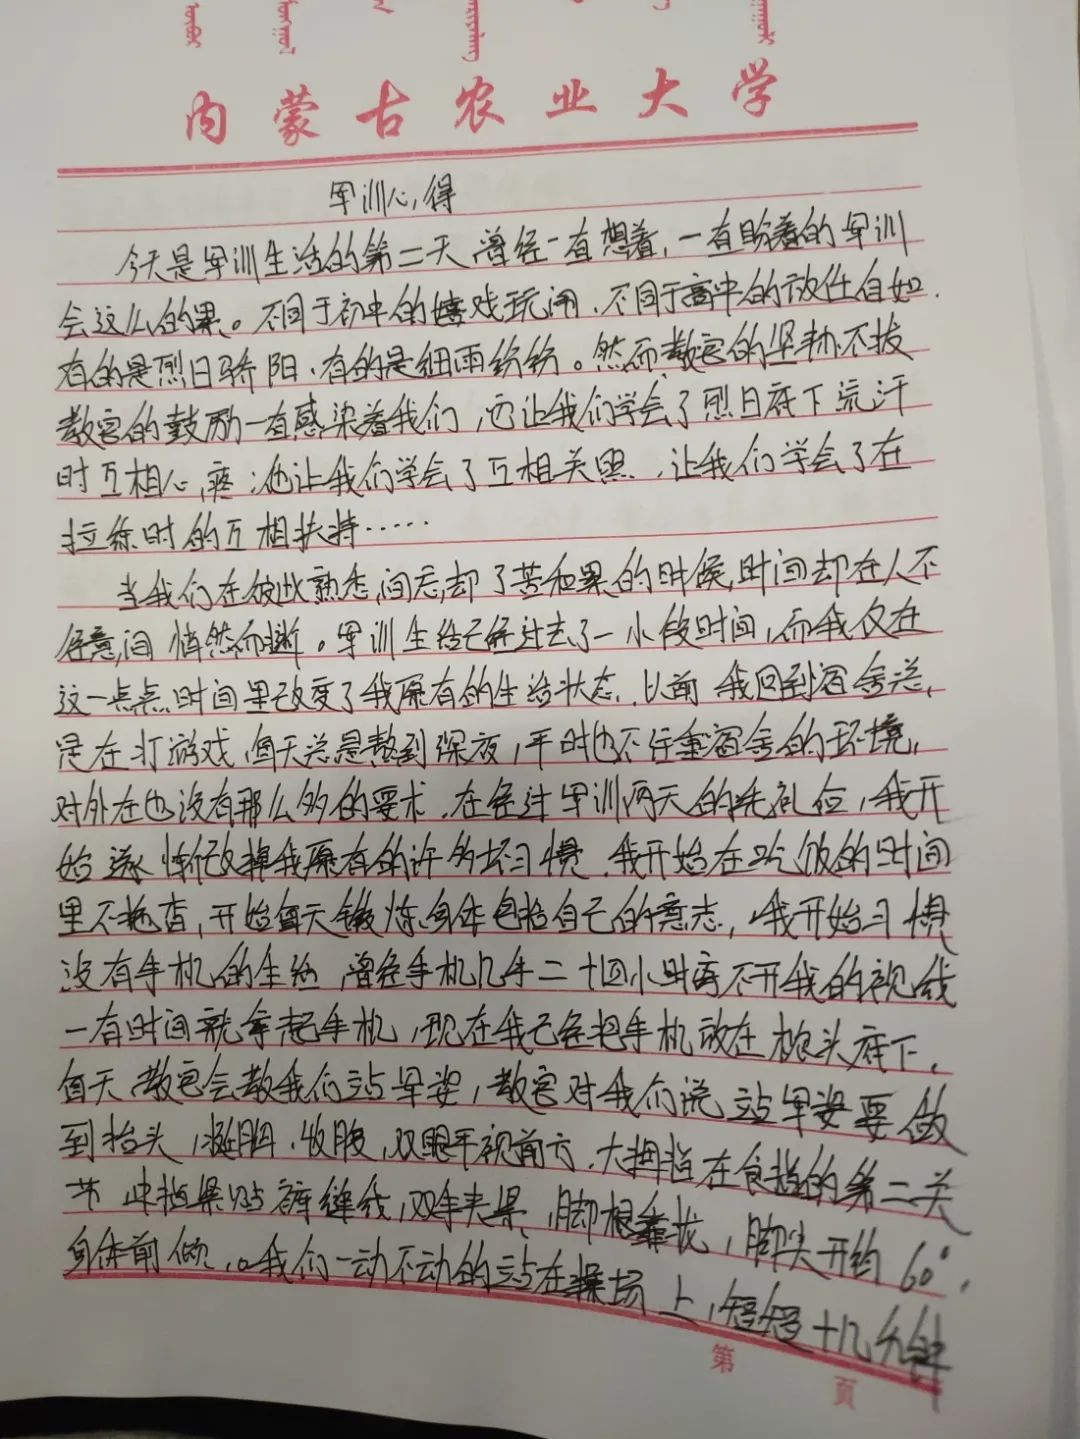 内蒙古农业大学
军训心得
今天是军训生活的第二天曾经一直想着，一直盼着的军训
会这么的累。不同于初中的嬉戏玩闹、不同于高中的放任自如.
有的是烈日骄阳、有的是细雨纷纷。然而教官的坚韧不拔
教官的鼓励一直感染着我们，也让我们学会了烈日底下流汗
时互相心疼；也让我们学会了互相关照、让我们学会了在
拉练时的互相扶持……
当我们在彼此熟悉间忘却了苦和累的时候,时间却在人不
经意间悄然而逝。军训生活已经过去了一小段时间，而我仅在
这一点点时间里改变了我原有的生活状态. 以前我回到宿舍总
是在打游戏,每天总是熬到深夜，平时也不注重宿舍的环境，
对外在也没有那么多的要求. 在经过军训两天的洗礼后，我开
始逐渐改掉我原有的许多坏习惯. 我开始在吃饭的时间
里不拖沓，开始每天锻炼身体包括自己的意志，我开始习惯
没有手机的生活 曾经手机几乎二十四小时离不开我的视线
一有时间就拿起手机，现在我已经把手机放在枕头底下.
每天教官会教我们站军姿，教官对我们说站军姿要做
到抬头，挺胸、收腹，双眼平视前方. 大拇指在食指的第二关
节 中指紧贴裤缝线，双手夹紧，脚根靠拢，脚尖开约60°，
身体前倾。我们一动不动的站在操场上，短短十几分钟
第 页